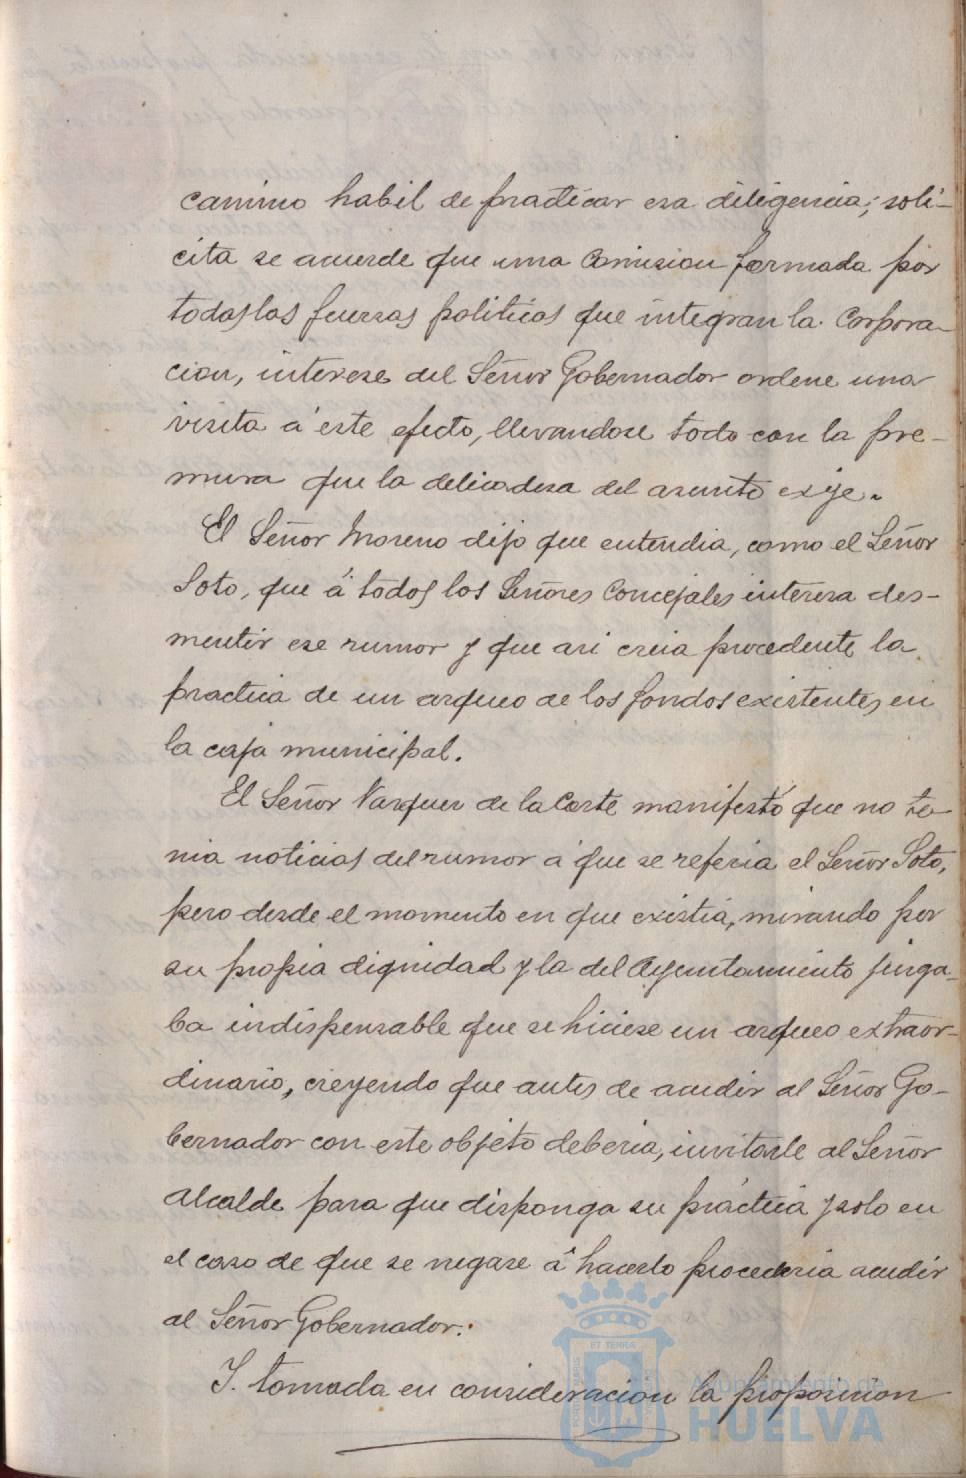 camino habil de practicar esa diligencia; soli-
cita se acuerde que una Comision formada por
todas las fuerzas politicas que integran la Corpora-
cion, interese del Señor Gobernador ordene una
visita á este efecto, llevandose todo con la pre-
mura que la delicadeza del asunto exije.
El Señor Moreno dijo que entendia, como el Señor
Soto, que á todos los Señores Concejales interesa des-
mentir ese rumor y que asi creia procedente la
practica de un arqueo de los fondos existentes en
la caja municipal.
El Señor Vazquez de la Corte manifestó que no te-
nia noticias del rumor á que se referia el Señor Soto,
pero desde el momento en que existia, mirando por
su propia dignidad y la del Ayuntamiento juzga-
ba indispensable que se hiciese un arqueo extraor-
dinario, creyendo que antes de acudir al Señor Go-
bernador con este objeto deberia, invitarle al Señor
Alcalde para que disponga su práctica y solo en
el caso de que se negase á hacerlo procederia acudir
al Señor Gobernador.
Y. tomada en consideracion la proposicion
ET TERRA
Ayuntamiento de
HUELVA